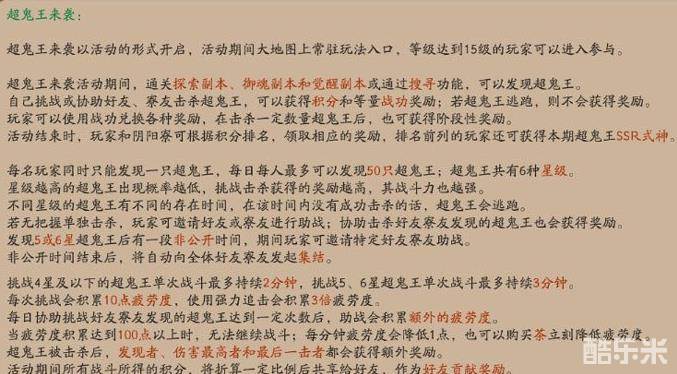 超鬼王来袭：
超鬼王来袭以活动的形式开启，活动期间大地图上常驻玩法入口，等级达到15级的玩家可以进入参与。
超鬼王来袭活动期间，通关探索副本、御魂副本和觉醒副本或通过搜寻功能，可以发现超鬼王。
自己挑战或协助好友、寮友击杀超鬼王，可以获得积分和等量战功奖励；若超鬼王逃跑，则不会获得奖励。
玩家可以使用战功兑换各种奖励，在击杀一定数量超鬼王后，也可获得阶段性奖励。
活动结束时，玩家和阴阳寮可根据积分排名，领取相应的奖励，排名前列的玩家还可获得本期超鬼王SSR式神。
每名玩家同时只能发现一只超鬼王，每日每人最多可以发现50只超鬼王；超鬼王共有6种星级。
星级越高的超鬼王出现概率越低，挑战击杀获得的奖励越高，其战斗力也越强。
不同星级的超鬼王有不同的存在时间，在该时间内没有成功击杀的话，超鬼王会逃跑。
若无把握单独击杀，玩家可邀请好友或寮友进行助战；协助击杀好友寮友发现的超鬼王也会获得奖励。
发现5或6星超鬼王后有一段非公开时间，期间玩家可邀请特定好友寮友助战。
非公开时间结束后，将自动向全体好友寮友发起集结。
挑战4星及以下的超鬼王单次战斗最多持续2分钟，挑战5、6星超鬼王单次战斗最多持续3分钟。
每次挑战会积累10点疲劳度，使用强力追击会积累3倍疲劳度。
每日协助挑战好友寮友发现的超鬼王达到一定次数后，助战会积累额外的疲劳度。
当疲劳度积累达到100点以上时，无法继续战斗；每分钟疲劳度会降低1点，也可以购买茶立刻降低疲劳度。
超鬼王被击杀后，发现者、伤害最高者和最后一击者都会获得额外奖励。
活动期间所有战斗所得的积分，将折算一定比例后共享给好友，作为好友贡献奖励。
酷乐米